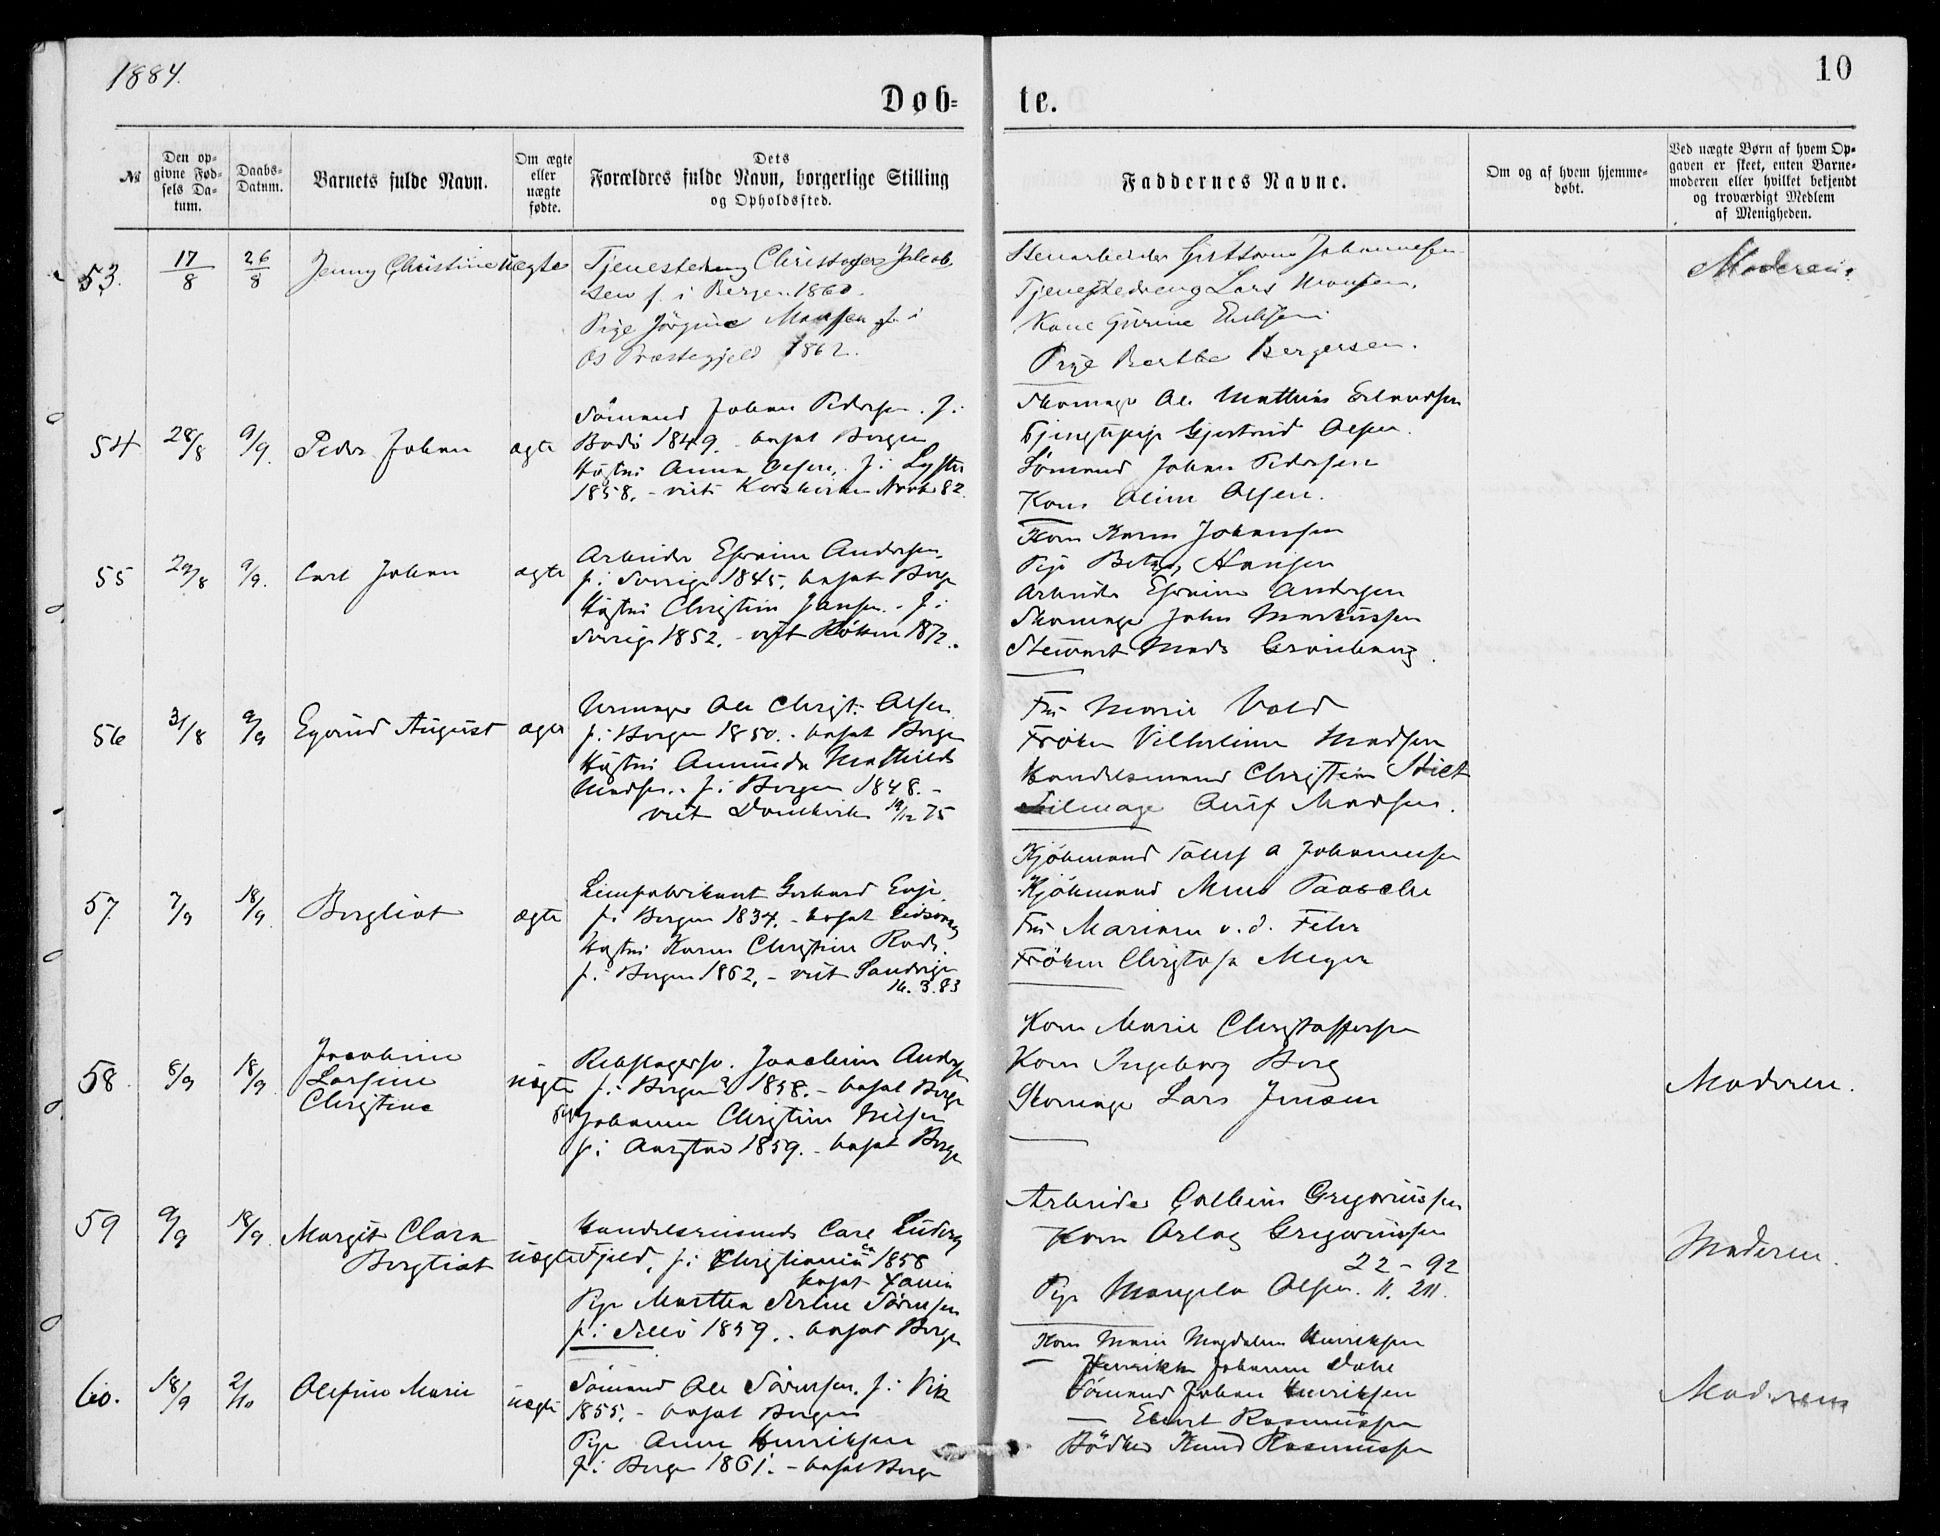 1884.
10
Døb=
te.
№
Den op-
givne Fød-
sels Da-
tum.
Daabs-
Datum.
Barnets fulde Navn.
Om ægte
eller
uægte
fødte.
Dets
Forældres fulde Navn, borgerlige Stilling
og Opholdssted.
Faddernes Navne.
Om og af hvem hjemme-
døbt.
Ved uægte Børn af hvem Op-
gaven er skeet, enten Barne-
moderen eller hvilket bekjendt
og troværdigt Medlem
af Menigheden.
53.
17/8
26/8
Jenny Christine
uægte
Tjenestedreng Christopher Jakob-
sen f. i Bergen 1860.
Pige Jörgine Monsen f. i
Os Præstegjeld 1862.
Johannesen
Tjenestedreng Lars Monsen.
Kone Gurine
Pige Berthe Bergersen.
Moderen.
54
28/8
9/9.
Peder Johan
ægte
Sömand Johan Pedersen. f. i
Bodö 1849. bosat Bergen
Hustru Anna Olsen. f. i Lyster
1858. - viet Korskirken Novbr 82.
Skomager Ole Mathias Erlandsen
Gjertrud Olsen.
Sömand Johan Pedersen
Kone Oline Olsen.
55
29/8
9/9.
Carl Johan
ægte
Arbeider Efraim Andersen.
f. i Sverige 1845. bosat Berge
Hustru Christine Jansen. f. i
Sverige 1852. - viet 1872.
Kone Karen Johansen
Pige Betsy Hansen
Arbeider Efraim Andersen
Skomager John Markussen
Stewart Mads
56
31/8
9/9
Eyvind August
ægte
Urmager Ole Christ. Olsen
f. i Bergen 1850. - bosat Berge
Hustru Amunda Mathilde
Madsen. f. i Bergen 1848. -
viet Domkirken 19/12 75
Fru Marie Vold
Fröken Vilhelmine Madsen
Handelsmand Christian
Madsen.
57
7/9
18/9
Bergliot
ægte
Limfabrikant Gerhard
f. i Bergen 1834. - bosat
Hustru Karen Christine Rode.
f. i Bergen 1862. - viet Sandvigen
16. 3. 83
Kjöbmand A Johannesen
Kjöbmand Paasche
Fru Mariane v. d. Fehr
Fröken Meyer
58.
8/9
18/9
Jacobine
Larsine
Christine
uægte
Rebslagersv. Joachim Anders
f. i Bergen 1858. - bosat Berge
Pige Johanne Christine Nilsen
f. i 1859. - bosat Berge
Kone Marie Christoffersen
Kone Ingeborg Berg
Skomager Lars Jensen
Moderen.
59
9/9
18/9
Margit Clara
Bergliot
uægte
Handelsreisende Carl Ludvig
Fjeld, f. i Christiania ca 1858
bosat
Pige Martha Serine Sörensen
f. i 1859. . bosat Berge
Arbeider Gregoriussen
Kone Gregoriussen
22 - 92
Pige Olsen.
Moderen.
60.
18/9
2/10
Olefine Marie
uægte
Sömand Ole Sörensen. f. i Vik
1855. - bosat Bergen
Pige Anne Henriksen
f. i Berge 1861. - bosat Berge
Kone Marie Magdalene Henriksen
Johanne Dahl
Sömand Johan Henriksen
— Rasmussen
Bödker Knud Rasmussen
Moderen